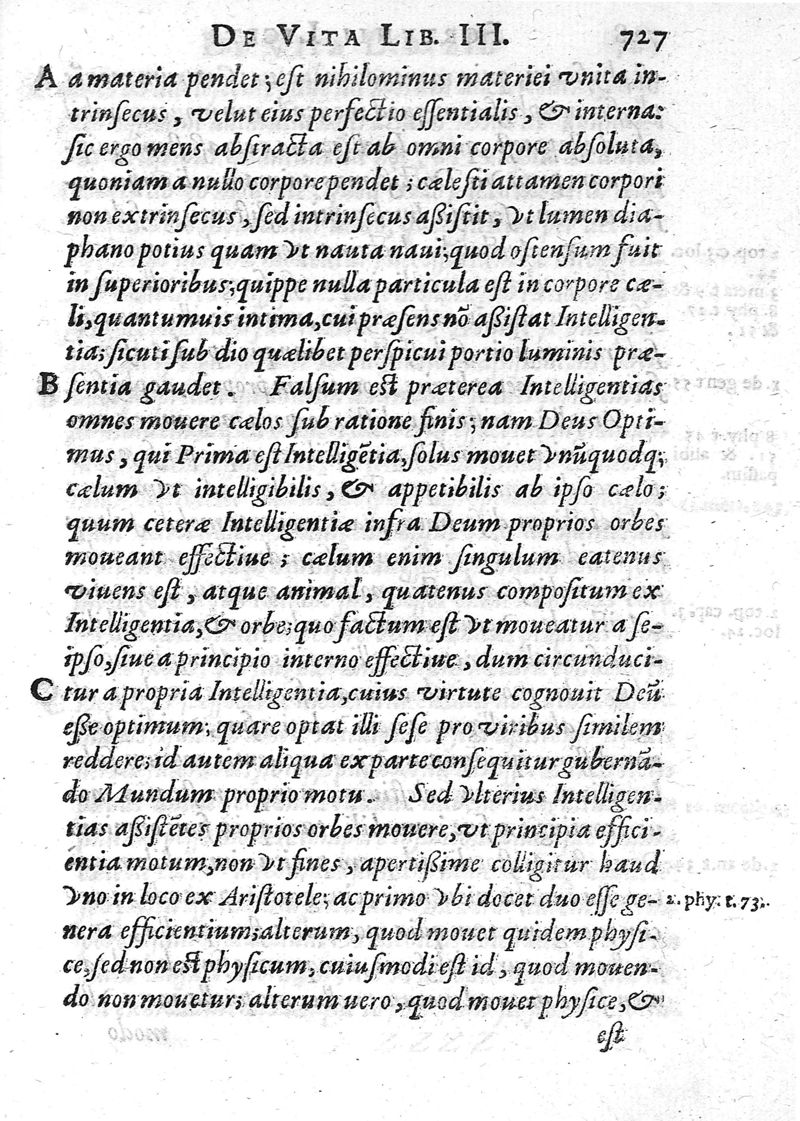 DE VITA LIB. III. 727
A a materia pendet; est nihilominus materiei vnita in-
trinsecus, velut eius perfectio essentialis, & interna:
sic ergo mens abstracta est ab omni corpore absoluta,
quoniam a nullo corpore pendet; cælesti attamen corpori
non extrinsecus, sed intrinsecus aßistit, vt lumen dia-
phano potius quam vt nauta naui; quod ostensum fuit
in superioribus; quippe nulla particula est in corpore cæ-
li, quantumuis intima, cui præsens nõ aßistat Intelligen-
tia; sicuti sub dio quælibet perspicui portio luminis præ-
B sentia gaudet. Falsum est præterea Intelligentias
omnes mouere cælos sub ratione finis; nam Deus Opti-
mus, qui Prima est Intelligẽtia, solus mouet vnũquodq;
cælum vt intelligibilis, & appetibilis ab ipso cælo;
quum ceteræ Intelligentiæ infra Deum proprios orbes
moueant effectiue; cælum enim singulum eatenus
viuens est, atque animal, quatenus compositum ex
Intelligentia, & orbe; quo factum est vt moueatur a se-
ipso, siue a principio interno effectiue, dum circunduci-
C tur a propria Intelligentia, cuius virtute cognouit Deũ
esse optimum; quare optat illi sese pro viribus similem
reddere; id autem aliqua ex parte consequitur gubernã-
do Mundum proprio motu. Sed vlterius Intelligen-
tias aßistẽtes proprios orbes mouere, vt principia effici-
entia motum, non vt fines, apertißime colligitur haud
vno in loco ex Aristotele; ac primo vbi docet duo esse ge- 2. phy: t. 73.
nera efficientium; alterum, quod mouet quidem physi-
ce, sed non est physicum, cuiusmodi est id, quod mouen-
do non mouetur; alterum uero, quod mouet physice, &
est